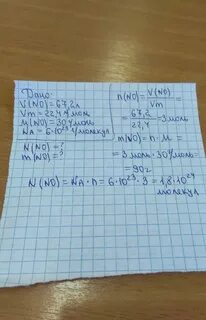 Дано:
V(NO)=67,2л
Vm=22,4 л/моль
M(NO)=30 г/моль
NA=6·10²³ 1/молекул
N(NO)=?
m(NO)=?
n(NO)=V(NO)/Vm=
=67,2/22,4=3 моль
m(NO)=n·M=
=3 моль·30 г/моль=
=90г
N(NO)=NA·n=6·10²³·3=18·10²³
молекул